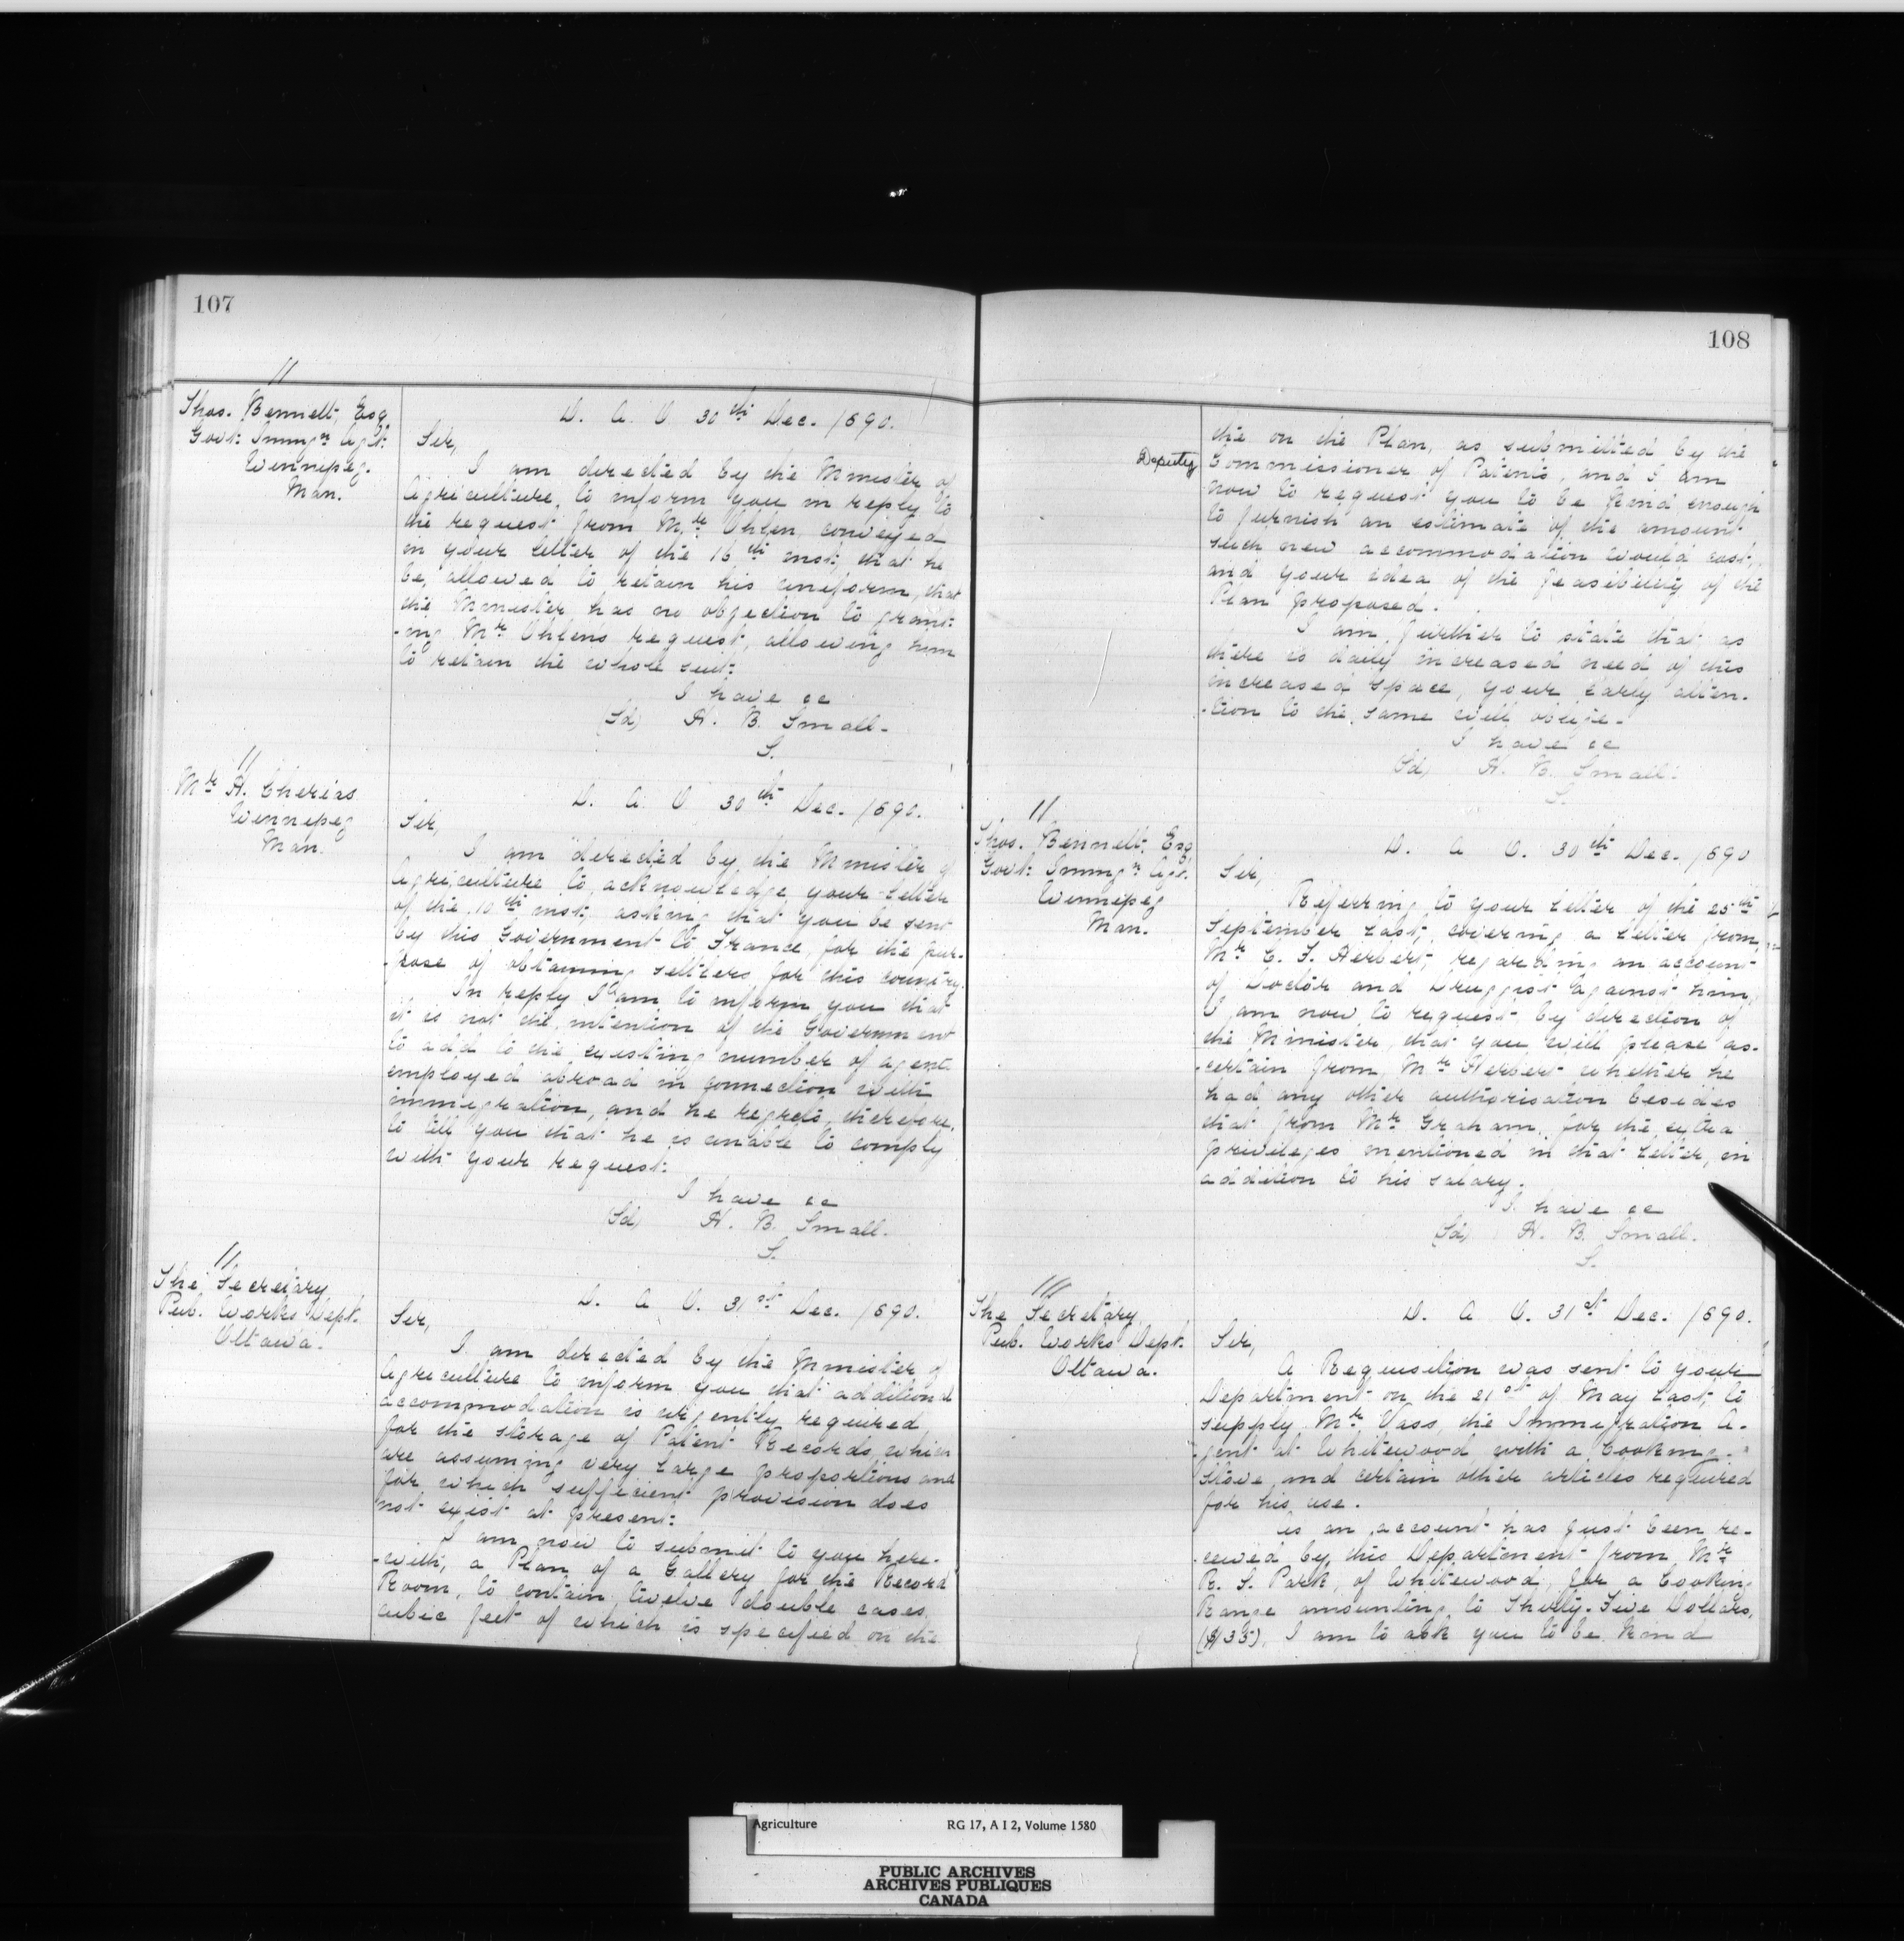 107
//
Thos. Bennett, Esq
Govt: Immgn Agt:
Winnipeg.
Man.
D. A. O 30th Dec. 1890.
Sir,
I am directed by the Minister of
Agriculture, to inform you in reply to
the request from Mr. Ohlen, conveyed
in your letter of the 16th inst; that he
be, allowed to retain his uniform, that
the Minister has no objection to grant:
-ing Mr Ohlen's request, allowing him
to retain the whole suit:
I have &c
(Sd) H. B. Small.
S.
//
Mr A. Cherias
Winnipeg
Man.
D. A. O 30th Dec. 1890.
Sir,
I am directed by the Minister of
Agriculture to, acknowledge your letter
of the 10th inst; asking that you be sent
by this Government to France, for the pur-
-pose of obtaining settlers for this country.
In reply I am to inform you that
it is not the intention of the Government
to add to the existing number of agent
employed abroad in connection with
immigration, and he regrets, therefore,
to tell you that he is unable to comply
with your request:
I have &c
(Sd) H. B. Small.
S.
//
The Secretary,
Pub. Works Dept.
Ottawa.
D. A. O. 31st Dec. 1890.
Sir,
I am directed by the Minister of
Agriculture to inform you that additional
accommodation is urgently required
for the storage of Patent Records, which
are assuming very large proportions and
for which sufficient provision does
not exist at present:
I am now to submit to you here-
-with, a Plan of a Gallery for the Record
Room, to contain, twelve double cases,
cubic feet of which is specified on the
108
the on the Plan, as submitted by the
Deputy Commissioner of Patents, and I am
now to request you to be kind enough
to furnish an estimate of the amount
such new accommodation would cost,
and your idea of the feasibility of the
Plan proposed.
I am further to state that as
there is daily increased need of this
increased space, your early atten-
-tion to the same will oblige.
I have &c
(Sd) H. B. Small.
S.
//
Thos. Bennett, Esq
Govt: Immgn Agt.
Winnipeg
Man.
D. A O. 30th Dec. 1890
Sir,
Referring to your letter of the 25th
September last, covering a letter from,
Mr C. F. Herbert, regarding an account
of Doctor and Druggist against him,
I am now to request by direction of
the Minister, that you will please as-
-certain from, Mr Herbert whether he
had any other authorisation besides
that from Mr Graham, for the extra
privileges mentioned in that letter, in
addition to his salary.
I have &c
(Sd) H. B. Small.
S.
///
The Secretary,
Pub. Works Dept.
Ottawa.
D. A O. 31st Dec. 1890.
Sir,
A Requisition was sent to your
Department on the 21st of May last, to
supply Mr Vass, the Immigration A-
-gent at Whitewood with a Cooking-
stove and certain other articles required
for his use.
As an account has just been re-
-ceived by, this Department from Mr
R. S. Park, of Whitewood, for a Cooking
Range amounting to Thirty-Five Dollars,
($35). I am to ask you to be kind
Agriculture RG 17, A I 2, Volume 1580
PUBLIC ARCHIVES
ARCHIVES PUBLIQUES
CANADA